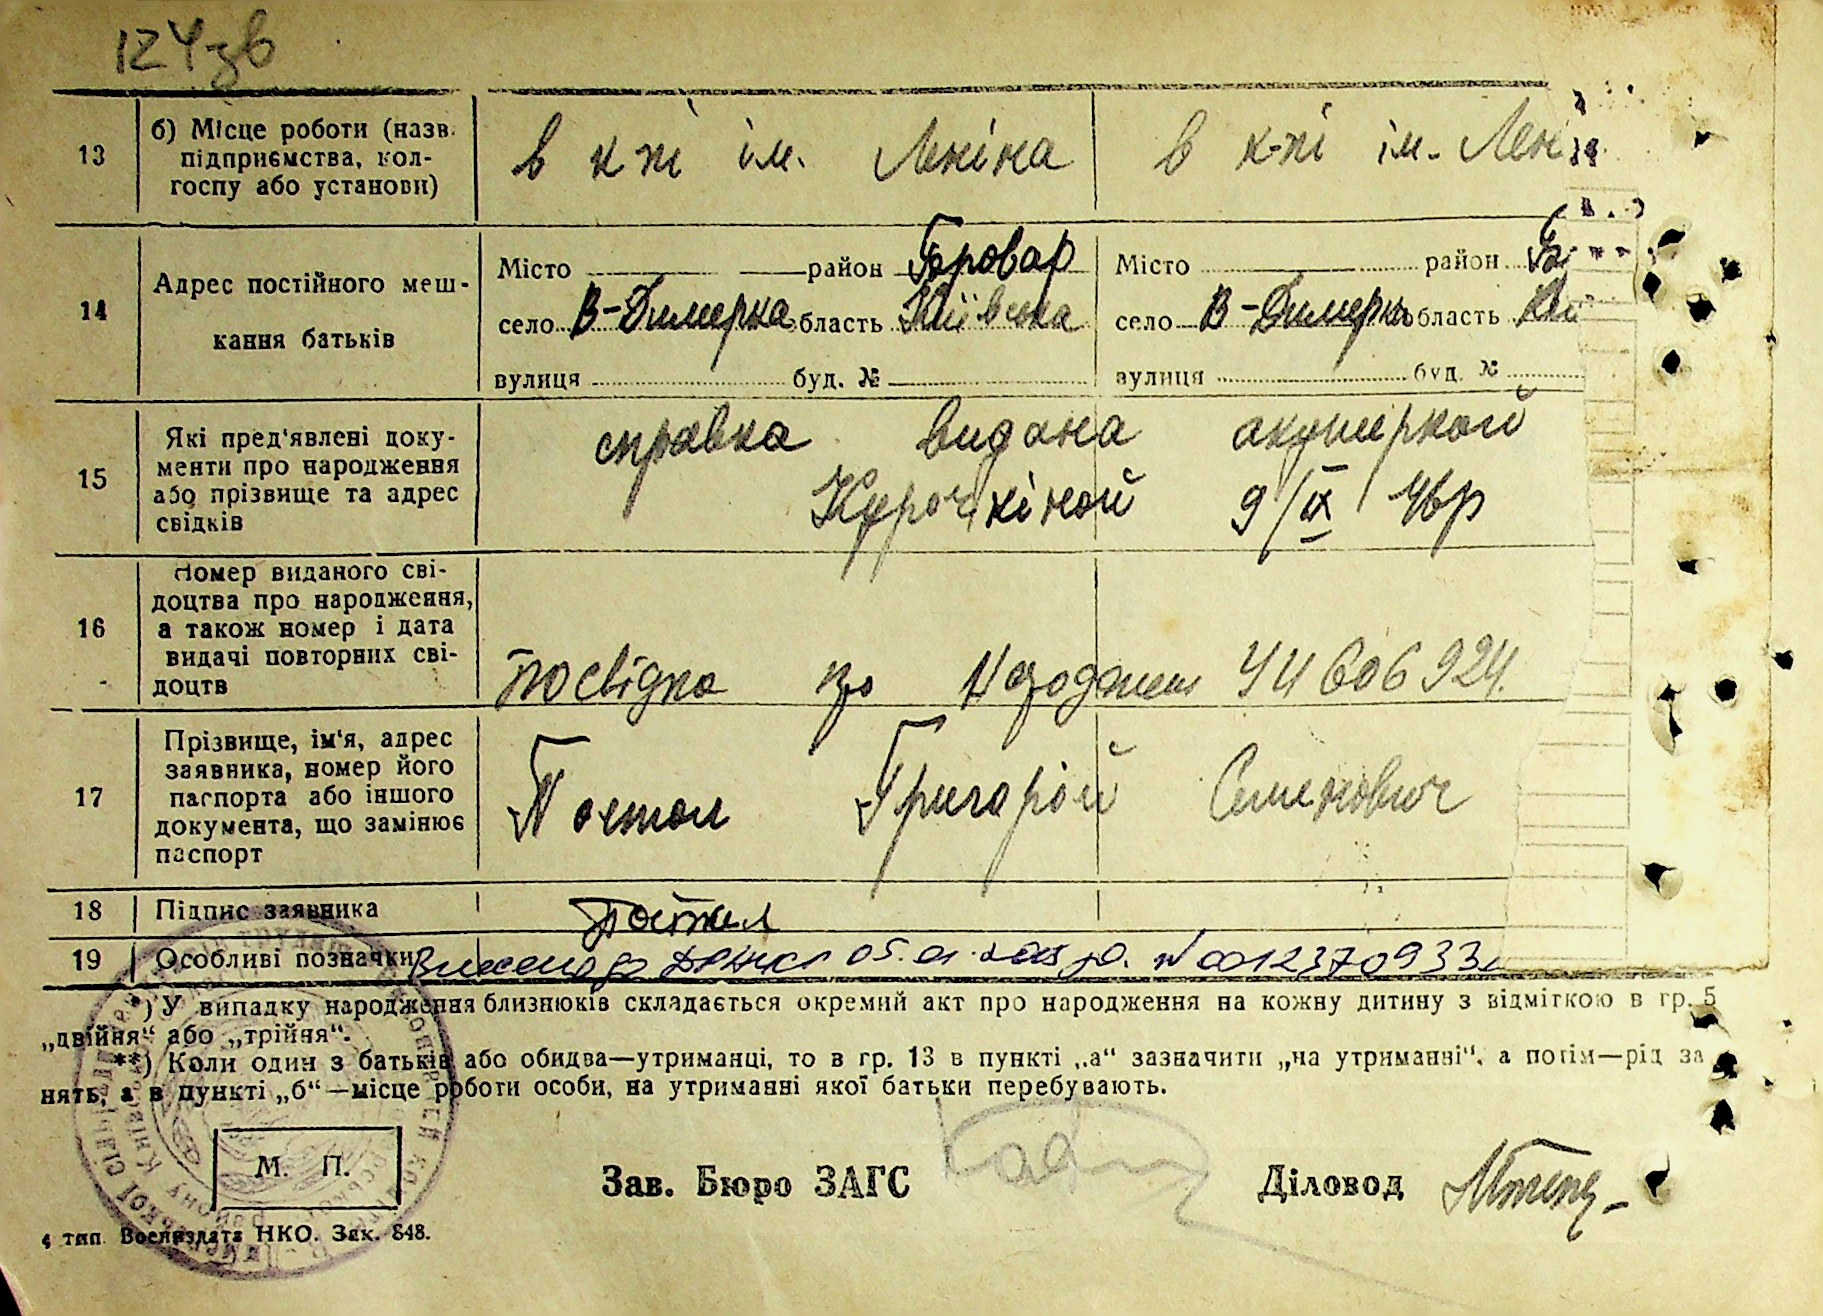 124зв
13 б) Місце роботи (назв. підприємства, колгоспу або установи) в к-пі ім. Леніна в к-пі ім. Лен
14 Адрес постійного мешкання батьків
Місто район Бровар Місто район Б
село В-Димерка область Київська село В-Димерка область Ки
вулиця буд. № вулиця буд. №
15 Які пред'явлені документи про народження або прізвище та адрес свідків
справка видана акушеркой
Курочкіной 9/IX 46р
16 Номер виданого свідоцтва про народження, а також номер і дата видачі повторних свідоцтв
посвідка про 606924
17 Прізвище, ім'я, адрес заявника, номер його паспорта або іншого документа, що замінює паспорт
Постол Григорій Семенович
18 Підпис заявника Постол
19 Особливі позначки Внесено до ДРАЦС 05.01. р. № 00123709331
*) У випадку народження близнюків складається окремий акт про народження на кожну дитину з відміткою в гр. 5
„двійня“ або „трійня“.
**) Коли один з батьків або обидва—утриманці, то в гр. 13 в пункті „а“ зазначити „на утриманні“, а потім—рід за
нять, а в пункті „б“—місце роботи особи, на утриманні якої батьки перебувають.
М. П.
Зав. Бюро ЗАГС Діловод
4 тип. Воениздата НКО. Зак. 848.